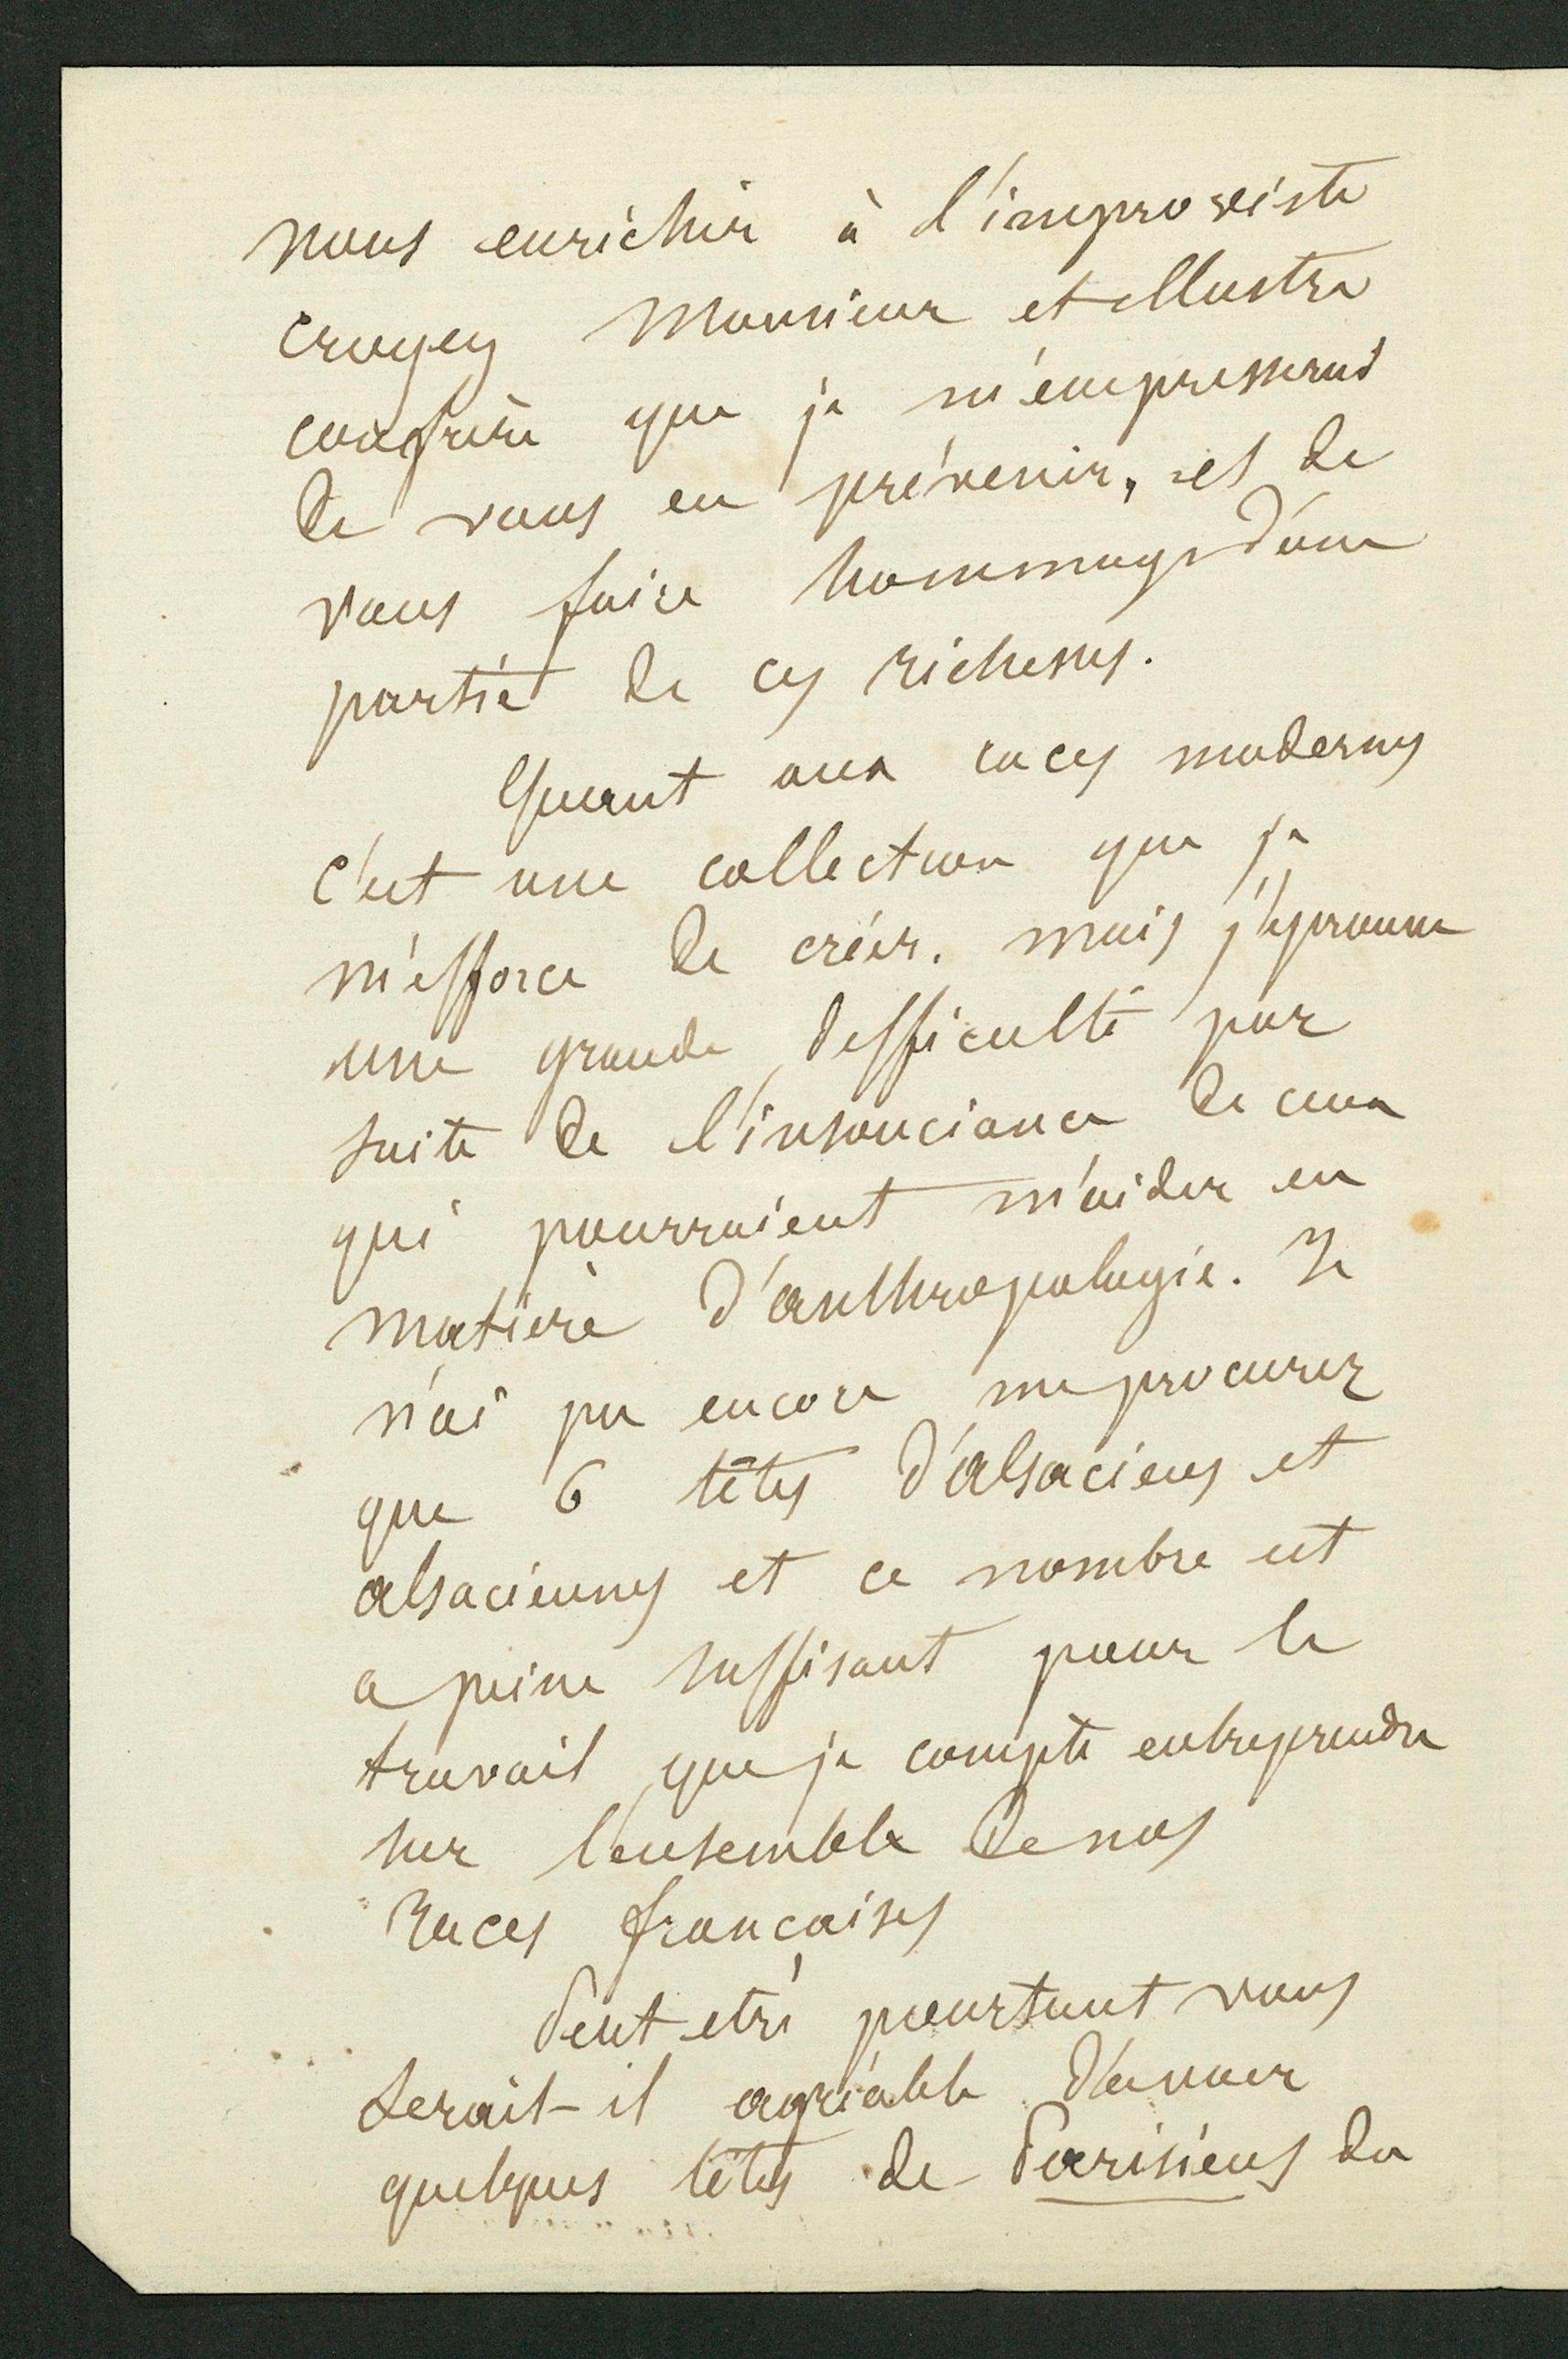 nous enrichir à l'improviste
croyez Monsieur et illustre
confrère que je m'empresserai
de vous en prévenir, et de
vous faire hommage d'une
partie de ces richesses.
Quant aux races modernes
c'est une collection que je
m'efforce de créer. mais j'éprouve
une grande difficulté par
suite de l'insouciance de ceux
qui pourraient m'aider en
matière d'anthropologie. Je
n'ai pu encore me procurer
que 6 têtes d'alsaciens et
alsaciennes et ce nombre est
a peine suffisant pour le
travail que je compte entreprendre
sur l'ensemble de nos
races françaises
Peut etre pourtant vous
serait-il agréable d'avoir
quelques têtes de Parisiens du